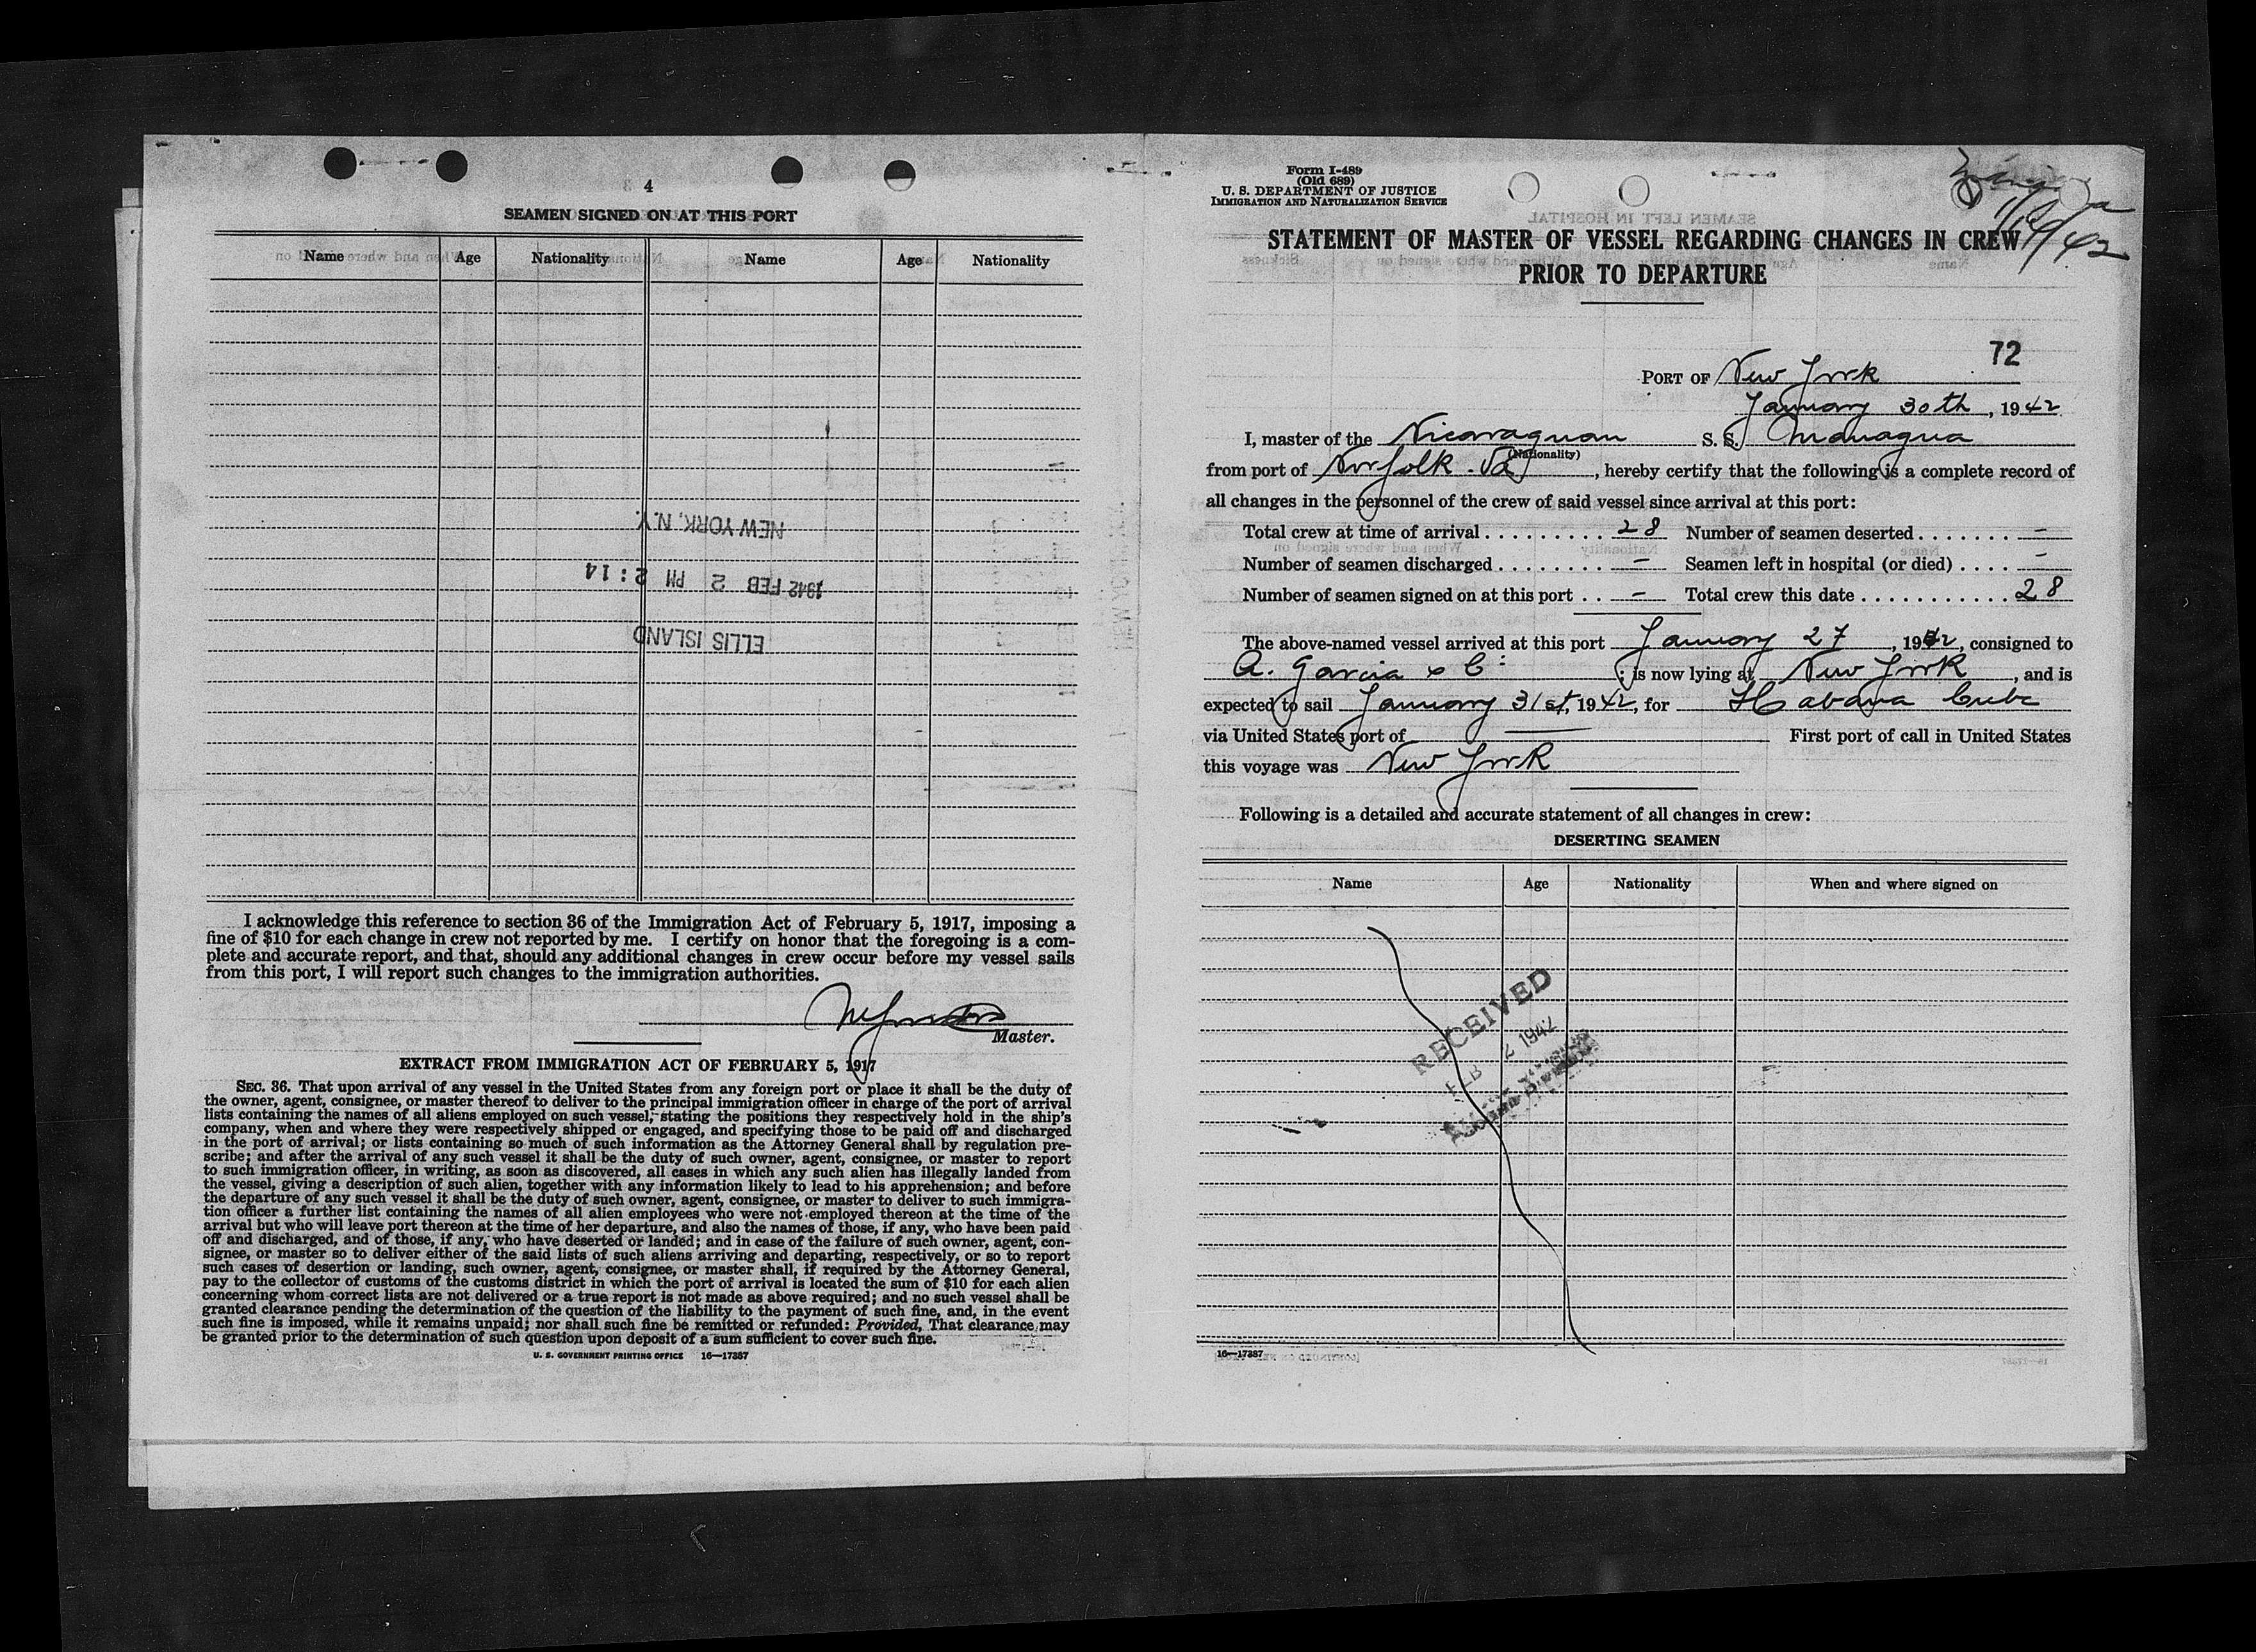 4
SEAMEN SIGNED ON AT THIS PORT
Name Age Nationality Name Age Nationality
NEW YORK, N.Y.
1942 FEB 2 PM 2:14
ELLIS ISLAND
I acknowledge this reference to section 36 of the Immigration Act of February 5, 1917, imposing a
fine of $10 for each change in crew not reported by me. I certify on honor that the foregoing is a com-
plete and accurate report, and that, should any additional changes in crew occur before my vessel sails
from this port, I will report such changes to the immigration authorities.
Master.
EXTRACT FROM IMMIGRATION ACT OF FEBRUARY 5, 1917
SEC. 36. That upon arrival of any vessel in the United States from any foreign port or place it shall be the duty of
the owner, agent, consignee, or master thereof to deliver to the principal immigration officer in charge of the port of arrival
lists containing the names of all aliens employed on such vessel, stating the positions they respectively hold in the ship's
company, when and where they were respectively shipped or engaged, and specifying those to be paid off and discharged
in the port of arrival; or lists containing so much of such information as the Attorney General shall by regulation pre-
scribe; and after the arrival of any such vessel it shall be the duty of such owner, agent, consignee, or master to report
to such immigration officer, in writing, as soon as discovered, all cases in which any such alien has illegally landed from
the vessel, giving a description of such alien, together with any information likely to lead to his apprehension; and before
the departure of any such vessel it shall be the duty of such owner, agent, consignee, or master to deliver to such immigra-
tion officer a further list containing the names of all alien employees who were not employed thereon at the time of the
arrival but who will leave port thereon at the time of her departure, and also the names of those, if any, who have been paid
off and discharged, and of those, if any, who have deserted or landed; and in case of the failure of such owner, agent, con-
signee, or master so to deliver either of the said lists of such aliens arriving and departing, respectively, or so to report
such cases of desertion or landing, such owner, agent, consignee, or master shall, if required by the Attorney General,
pay to the collector of customs of the customs district in which the port of arrival is located the sum of $10 for each alien
concerning whom correct lists are not delivered or a true report is not made as above required; and no such vessel shall be
granted clearance pending the determination of the question of the liability to the payment of such fine, and, in the event
such fine is imposed, while it remains unpaid; nor shall such fine be remitted or refunded: Provided, That clearance may
be granted prior to the determination of such question upon deposit of a sum sufficient to cover such fine.
U. S. GOVERNMENT PRINTING OFFICE 16—17387
Form I-489
(Old 689)
U. S. DEPARTMENT OF JUSTICE
IMMIGRATION AND NATURALIZATION SERVICE
STATEMENT OF MASTER OF VESSEL REGARDING CHANGES IN CREW
PRIOR TO DEPARTURE
72
PORT OF New York
January 30th, 1942
I, master of the Nicaraguan S. S. Managua
(Nationality)
from port of Norfolk. Va, hereby certify that the following is a complete record of
all changes in the personnel of the crew of said vessel since arrival at this port:
Total crew at time of arrival . . . . . . . . . 28 Number of seamen deserted . . . . . . . —
Number of seamen discharged . . . . . . . . — Seamen left in hospital (or died) . . . . —
Number of seamen signed on at this port . . — Total crew this date . . . . . . . . . . . 28
The above-named vessel arrived at this port January 27, 1942, consigned to
A. Garcia & Cº; is now lying at New York, and is
expected to sail January 31st, 1942, for Habana Cuba
via United States port of — First port of call in United States
this voyage was New York
Following is a detailed and accurate statement of all changes in crew:
DESERTING SEAMEN
Name Age Nationality When and where signed on
RECEIVED
FEB 2 1942
16—17387